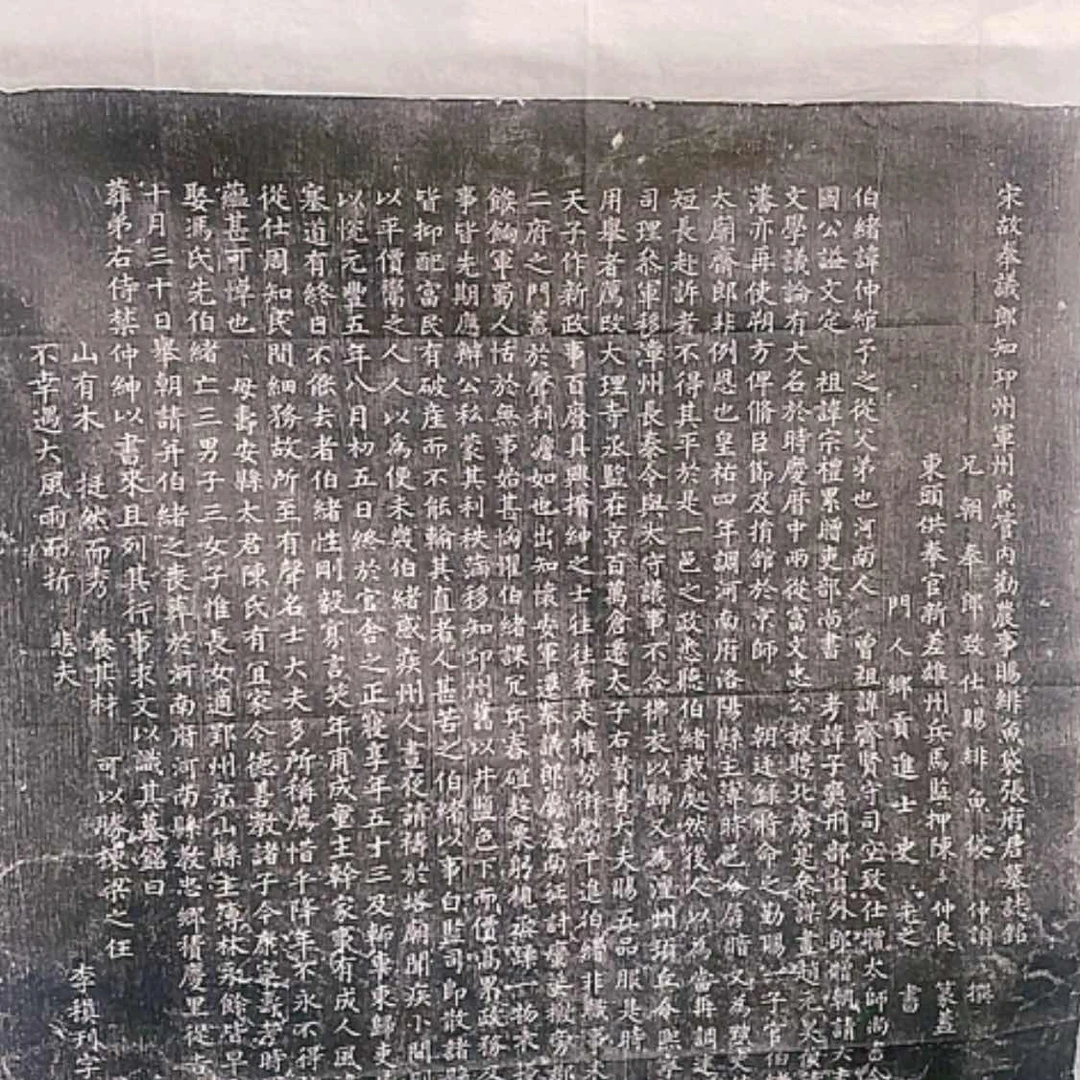 宋故奉議郎知邛州軍州兼管內勸農事賜緋魚袋張府君墓誌銘
兄朝奉郎致仕賜緋魚袋 仲 撰
東頭供奉官新差雄州兵馬監押陳 仲良 篆蓋
門人鄉貢進士史 書
伯緒諱仲綰子之從父弟也河南人 曾祖諱齊賢守司空致仕贈太師尚書令
國公謚文定 祖諱宗禮累贈吏部尚書 考諱子奭刑部員外郎贈朝請大夫
文學議論有大名於時慶曆中兩從富文忠公報聘北虜寔參謀畫趙元昊復
藩亦再使朔方俾脩臣節及捐館於京師 朝廷錄將命之勤賜一子官伯緒
太廟齋郎非例恩也皇祐四年調河南府洛陽縣主簿時邑令 又為
短長赴訴者不得其平於是一邑之政悉聽伯緒裁處然後人以為當再調
司理叅軍移漳州長泰令與太守議事不合拂衣以歸又為澶州頓丘令與
用舉者薦改大理寺丞監在京百萬倉遷太子右贊善大夫賜五品服是時
天子作新政事百廢具興搢紳之士往往奔走權勢術 干進伯緒非職事
二府之門蓋於聲利澹如也出知懷安軍遷奉議郎屬瀘南征討
餱餉軍蜀人恬於無事始甚恟懼伯緒課冗兵舂磑 粟 一物
事皆先期應辦公私蒙其利秩滿移知邛州舊以井監色下而價高累政務
皆抑配富民有破產而不能輸其直者人甚苦之伯緒以事白監司即散諸
以平價鬻之人人以為便未幾伯緒感疾州人晝夜 禱於塔廟聞疾小間
以恍元豐五年八月初五日終於官舍之正寢享年五十三及輀車東歸
塞道有終日不能去者伯緒性剛毅寡言笑年甫成童主幹家 有成人風
從仕周知民間細務故所至有聲名士大夫多所稱薦惜乎降年不永不得
蘊甚可悼也 母壽安縣太君陳氏有宜家令德善教諸子今康寧壽考時
娶馮氏先伯緒亡三男子三女子惟長女適郢州京山縣主簿林永餘皆早
十月三十日舉朝請并伯緒之喪葬於河南府河南縣教忠鄉積慶里從吉
葬弟右侍禁仲紳以書來且列其行事求文以識其墓銘曰
山有木 挺然而秀 養其材 可以勝棟梁之任
不幸遇大風雨而折 悲夫
李稹刊字